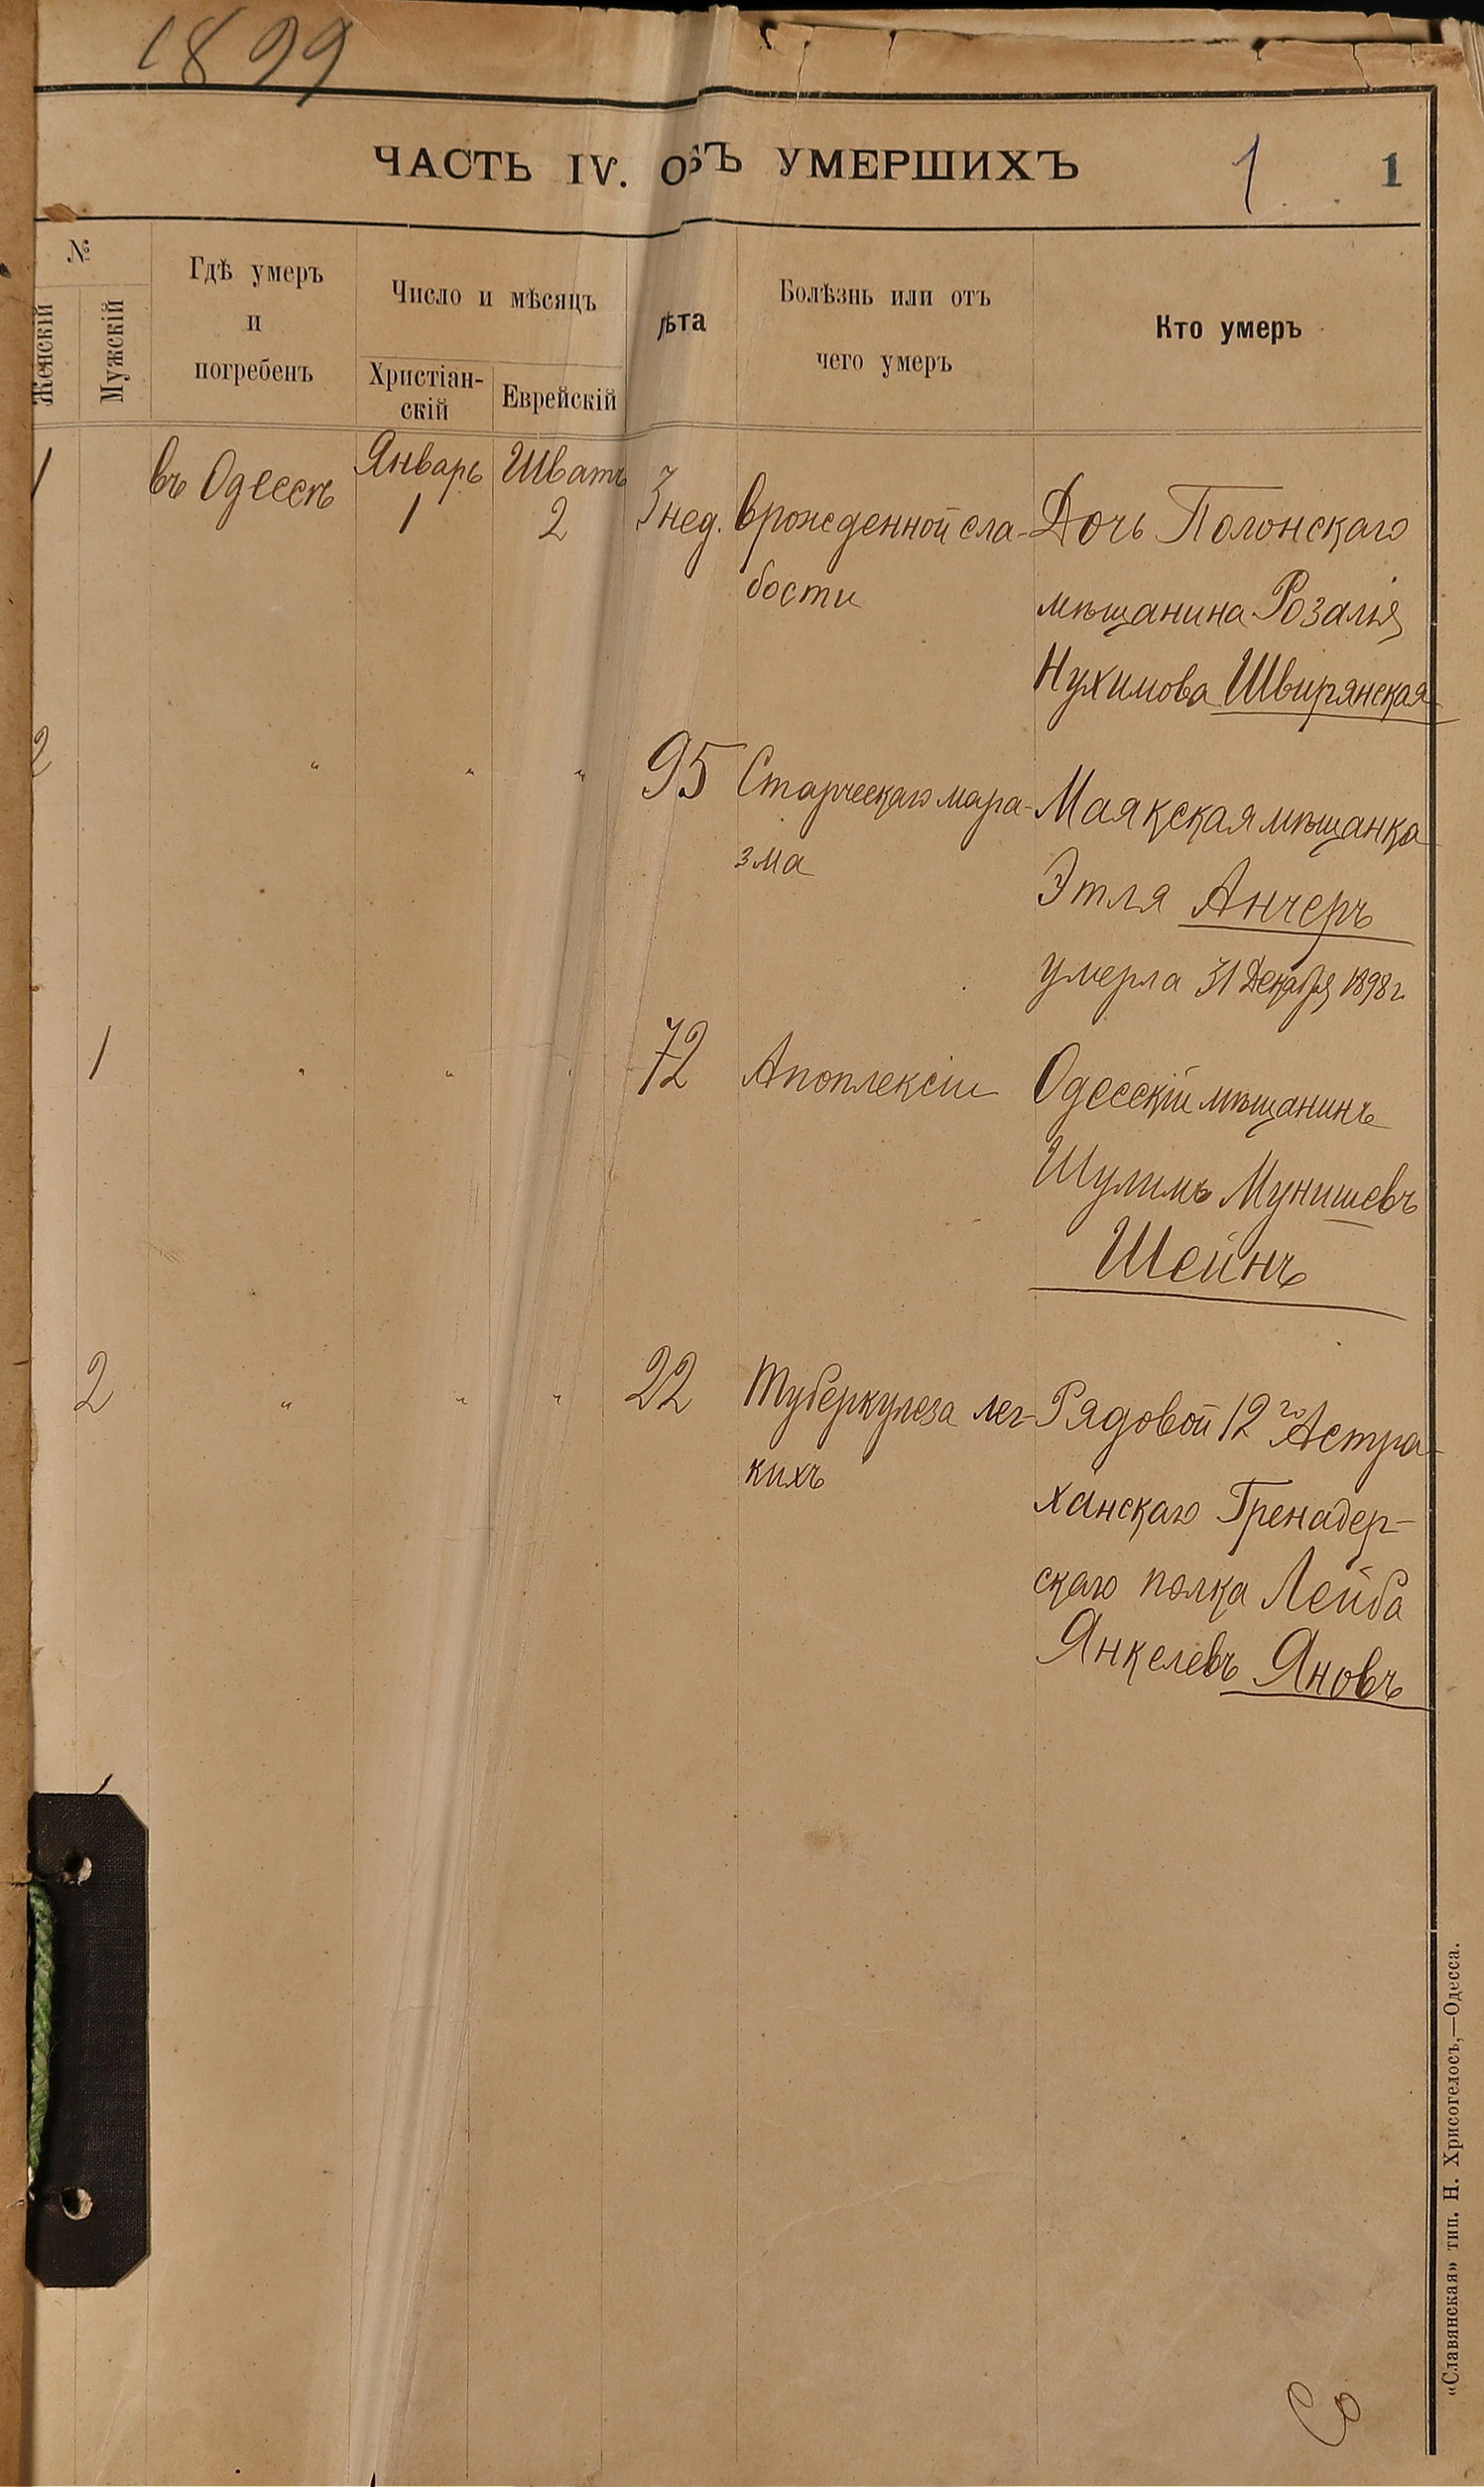 1899
ЧАСТЬ IV. ОБЪ УМЕРШИХЪ 1 1
№
Женскій
Мужскій
Гдѣ умеръ
и
погребенъ
Число и мѣсяцъ
Христіан-
скій
Еврейскій
лѣта
Болѣзнь или отъ
чего умеръ
Кто умеръ
1 въ Одессѣ Январь 1 Шватъ 2 3 нед. Врожденной сла- Дочь Полонскаго
бости мѣщанина Розалія
Нухимова Швирянская
2 " " " 95 Старческаго мара- Маякская мѣщанка
зма Этля Анчеръ
умерла 31 Декабря 1898 г
1 " " " 72 Апоплексіи Одесскій мѣщанинъ
Шулимъ Мунишевъ
Шейнъ
2 " " " 22 Туберкулеза лег- Рядовой 12го Астра-
кихъ ханскаго Гренадер-
скаго полка Лейба
Янкелевъ Яновъ
«Славянская» тип. Н. Хрисогелосъ,—Одесса.
Со